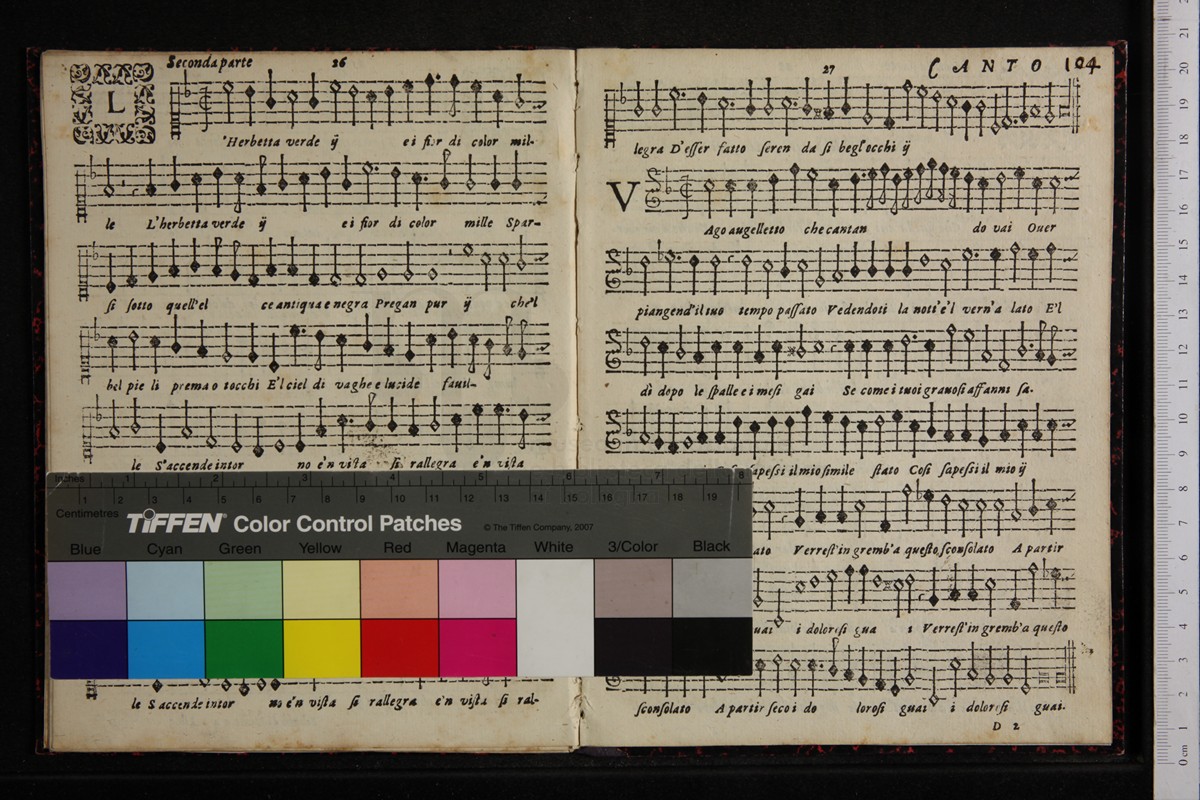 Seconda parte 26
L
'Herbetta verde ij e i fior di color mil-
le L'herbetta verde ij e i fior di color mille Spar-
si sotto quell'el ce antiqua e negra Pregan pur ij che'l
bel pie li prema o tocchi E'l ciel di vaghe e lucide fauil-
le S'accende intor no e'n vista si rallegra e'n vista
le S'accende intor no e'n vista si rallegra e'n vista si ral-
27 CANTO 104
legra D'esser fatto seren da si begl'occhi ij
V
Ago augelletto che cantan do vai Ouer
piangend'il tuo tempo passato Vedendoti la nott'e'l vern'a lato E'l
dì dopo le spalle e i mesi gai Se come i tuoi grauosi affanni sa-
sapessi il mio simile stato Cosi sapessi il mio ij
ato Verrest'in gremb'a questo sconsolato A partir
guai i dolorosi gua i Verrest'in gremb'a questo
sconsolato A partir seco i do lorosi guai i dolorosi guai.
D 2
Inches 1 2 3 4 5 6 7 8
1 2 3 4 5 6 7 8 9 10 11 12 13 14 15 16 17 18 19
Centimetres
TIFFEN Color Control Patches © The Tiffen Company, 2007
Blue Cyan Green Yellow Red Magenta White 3/Color Black
21
20
19
18
17
16
15
14
13
12
11
10
9
8
7
6
5
4
3
2
1
0 cm